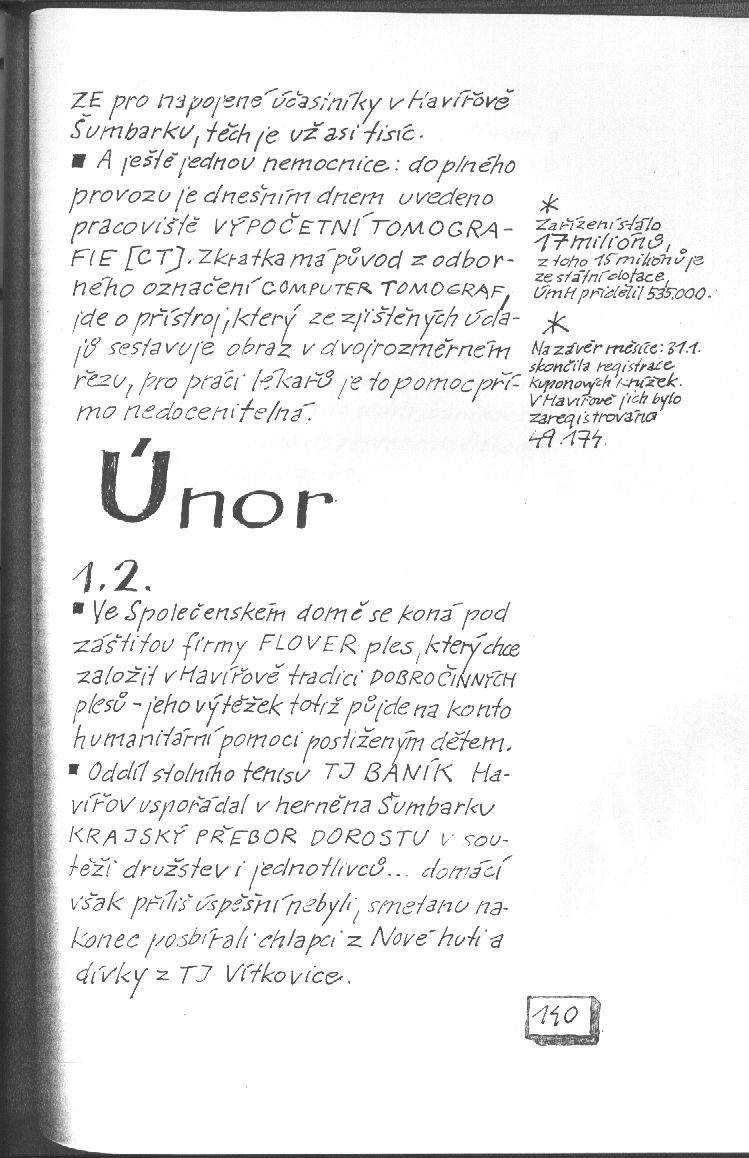 ZE pro napojené účastníky v Havířově
Šumbarku, těch je už asi tisíc.
▪ A ještě jednou nemocnice: do plného
provozu je dnešním dnem uvedeno
pracoviště VÝPOČETNÍ TOMOGRA-
FIE [CT]. Zkratka má původ z odbor-
ného označení COMPUTER TOMOGRAF,
jde o přístroj, který ze zjištěných úda-
jů sestavuje obraz v dvojrozměrném
řezu, pro práci lékařů je to pomoc pří-
mo nedocenitelná.
*
Zařízení stálo
17 miliónů,
z toho 15 miliónů je
ze státní dotace,
ÚmH přidělil 535.000.
*
Na závěr měsíce: 31.1.
skončila registrace
kuponových knížek.
V Havířově jich bylo
zaregistrováno
49.174.
Únor
1.2.
▪ Ve Společenském domě se koná pod
záštitou firmy FLOVER ples, který chce
založit v Havířově tradici DOBROČINNÝCH
plesů - jeho výtěžek totiž půjde na konto
humanitární pomoci postiženým dětem.
▪ Oddíl stolního tenisu TJ BANÍK Ha-
vířov uspořádal v herně na Šumbarku
KRAJSKÝ PŘEBOR DOROSTU v sou-
těži družstev i jednotlivců... domácí
však příliš úspěšní nebyli, smetanu na-
konec posbírali chlapci z Nové huti a
dívky z TJ Vítkovice.
140